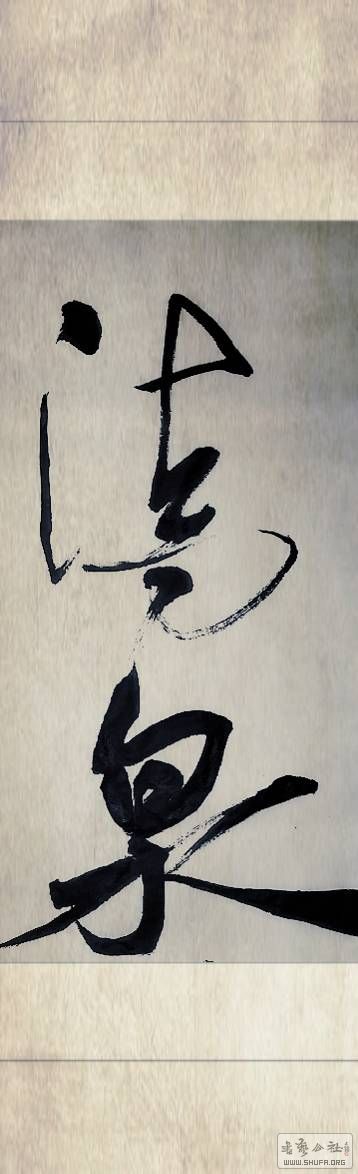 聽泉
书艺公社
WWW.SHUFA.ORG